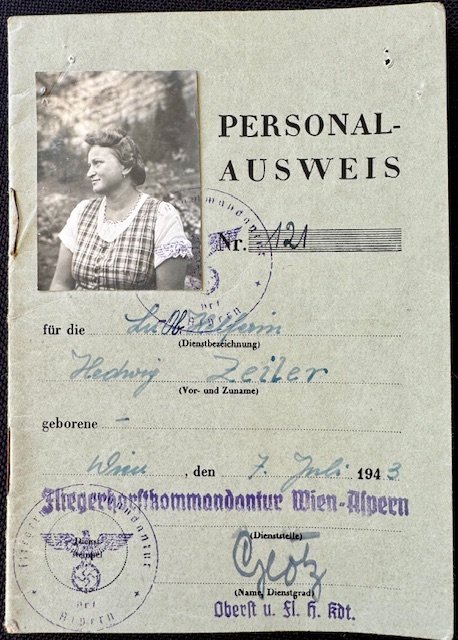 PERSONAL-
AUSWEIS
Nr. 121
für die Lw. Ob. Helferin
(Dienstbezeichnung)
Hedwig Zeiler
(Vor- und Zuname)
geborene –
Wien, den 7. Juli 1943
Fliegerhorstkommandantur Wien-Aspern
(Dienststelle)
Dienst
(Name, Dienstgrad)
Oberst u. Fl. H. Kdt.
Fliegerhorstkommandantur
Aspern